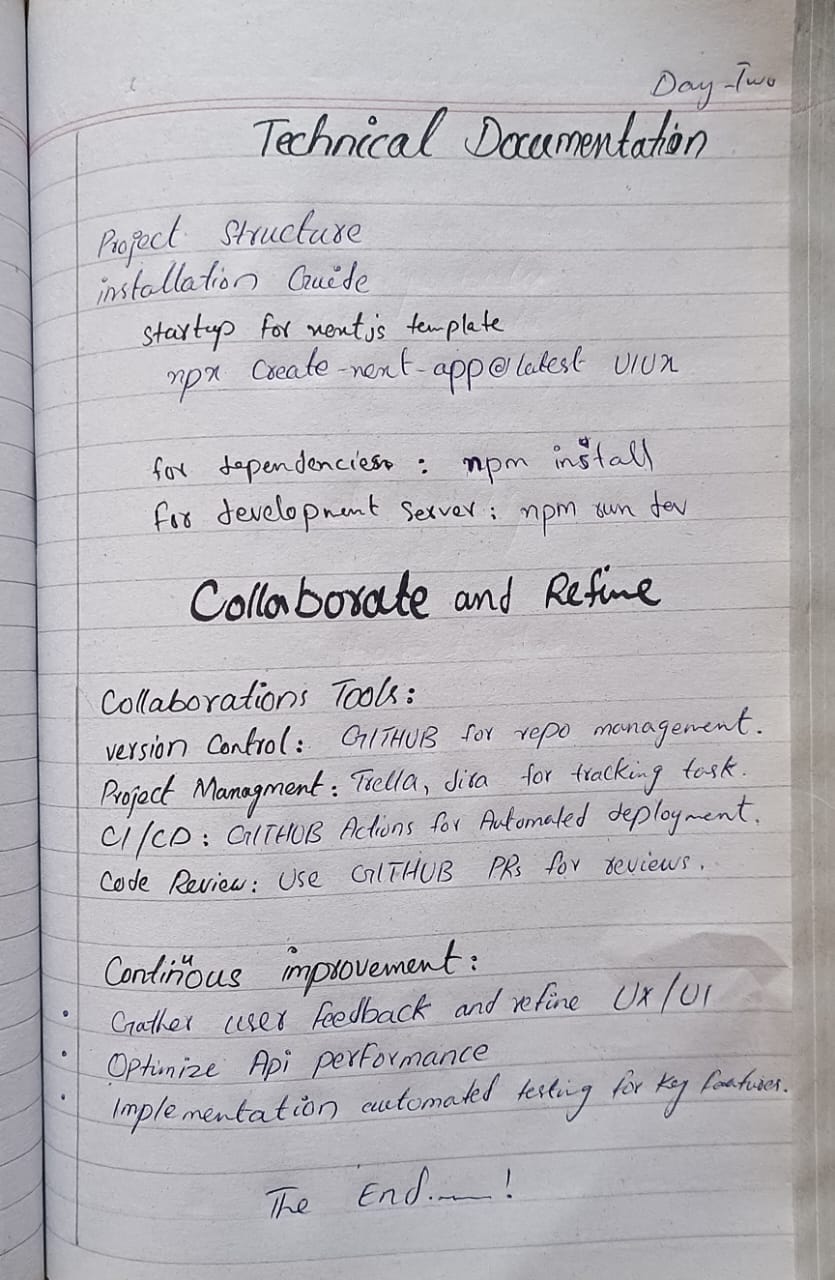 Day-Two
Technical Documentation
Project Structure
installation Guide
startup for nextjs template
npx Create-next-app@latest UIUX
for dependencies : npm install
For development Server : npm run dev
Collaborate and Refine
Collaborations Tools:
version Control: GITHUB for repo management.
Project Managment: Trella, Jira for tracking task.
CI/CD: GITHUB Actions for Automated deployment.
Code Review: Use GITHUB PRs for reviews.
Continuous improvement:
• Gather user feedback and refine UX/UI
• Optimize Api performance
• Implementation automated testing for key features.
The End.__!